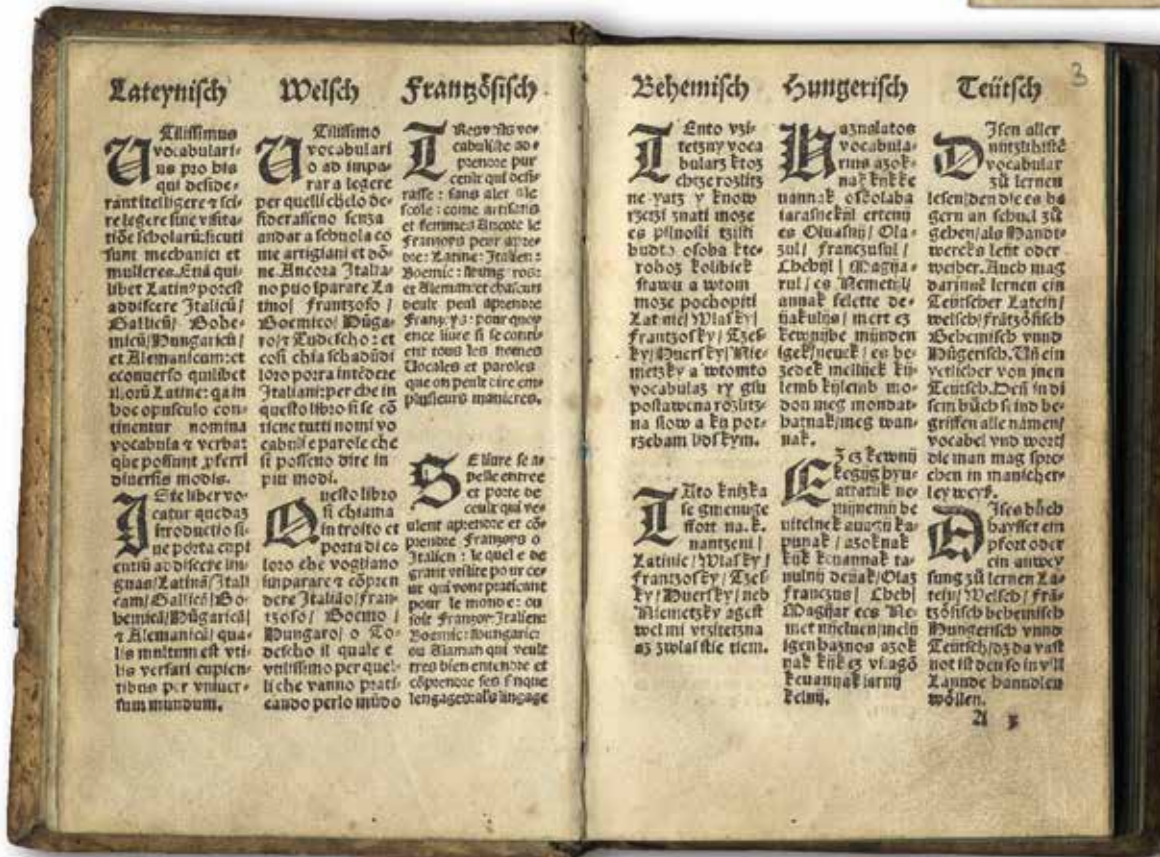 Lateynisch
UTilissimus
vocabulari-
us pro his
qui deside-
rant itelligere ⁊ sci-
re legere sine visita-
tiõe scholarũ: sicuti
sunt mechanici et
mulieres. Etiã qui-
libet Latinꝰ potest
addiscere Italicũ/
Gallicũ/ Bohe-
micũ/ Hungaricũ/
et Alemanicum: et
econuerso quilibet
illorũ Latine: qa in
hoc opusculo con-
tinentur nomina
vocabula ⁊ verba:
que possunt ꝓferri
diuersis modis.
ISte liber vo-
catur quedaʒ
introductio si-
ue porta cupi
entiũ addiscere lin-
guas/ Latinã/ Itali
cam/ Gallicã/ Bo-
hemicã/ Hũgaricã/
⁊ Alemanicã/ qua-
lis multum est vti-
lis versari cupien-
tibus per vniuer-
sum mundum.
Welsch
UTilissimo
vocabulari
o ad impa-
rar a legere
per quelli chelo de-
siderasseno senza
andar a schuola co
me artigiani et dõ-
ne. Ancora Italia-
no puo iparare La
tino/ Frantzoso/
Boemico/ Hũga-
ro/ ⁊ Tudescho: et
cosi chia schadũdi
loro porra intẽdere
Italiani: per che in
questo libro si se cõ
tiene tutti nomi vo
cabuli e parole che
si posseno dire in
piu modi.
QUesto libro
si chiama
introito et
porta di co
loro che vogliano
imparare ⁊ cõpren
dere Italião/ fran-
tzoso/ Boemo/
Hungaro/ o To-
descho il quale e
vtilissimo per quel-
li che vanno prati-
cando perlo mũdo
Frantzösisch
cabulaire ao-
prenore pur
ceulx qui desi-
rasse: sans aler ale
scole: come artisans
et femmes Ancore le
Françoys peut apre-
dre: Latine: Italien:
Boemic: Hung ros:
et Aleman: et chascun
deulx peut aprendre
Franç ys: pour quoy
ence liure si se conti-
ent tous les nomes
Vocales et paroles
que on peult dire em-
plusieurs manieres.
SE liure se a-
pelle entree
et porte de
ceulx qui ve-
ulent aprenore et cõ-
prendre Françoys o
Italien: le quel e de
grant vtilite pour ce-
ux qui vont praticant
pour le monde: ou
soit Françoy: Italien:
Boemic: Hungaric:
ou Alaman qui veult
tres bien entendre et
cõprenore ses s nque
lengages
Behemisch
TEnto vži-
tetzny voca
bularz ktoz
chtze rozlitz
ne yatz y know
rzetzi znati moze
es pilnosti tzisti
budto osoba kte-
rohoz kolibiek
stawu a wtom
moze pochopiti
Lat nie/ Wlasky/
frantzosky/ Tzes-
ky/ Huersky/ Nie-
metzky a wtomto
vocabulaz ry gsu
postawena rozlitz-
na slow a kij pot-
rzebam lidskym.
TAto knizka
se gmenuge
ffort na. k.
nantzeni/
Latinie/ Wlasky/
frantzosky/ Tzes-
ky/ Huersky/ neb
Niemetzky agest
wel mi vtzitetzna
az zwlasstie tiem.
Hungerisch
HAznalatos
vocabula-
rius azok-
nak kijkke
uannak
es Oluasnij/ Ola-
zul/ franczusul/
Chehijl/ Magija-
rul/ es Nemetijl/
annak felette de-
ijakulijs/ mert ez
kewnijbe mijnden
igek/ neuek/ es be-
zedek mellijek kij-
lemb kijlemb mo-
don meg mondat-
hatnak/ meg wan-
nak.
EZ ez kewnij
mijnemij be
uitelnek auagij ka-
punak/ azoknak
kijk keuannak ta-
nulnij deijak/ Olaz
Franczus/ Cheh/
Magijar ees Ne-
met nijeluen/ melij
igen haznos azok
nak kijk ez vi.agõ
keuannak iarnij
kelnij.
Teütsch
3
DJsen aller
nützlichistẽ
vocabular
zũ lernen
lesen/ den die es be
gern an schul zũ
gehen/ als Handt-
wercks leüt oder
weiber. Auch mag
darinnẽ lernen ein
Teütscher Latein/
welsch/ frãtzösisch
Behemisch vnnd
Hũgerisch. Vñ ein
yetlicher von jnen
Teutsch. Deñ in di
sem bũch seind be-
griffen alle námen/
vocabel vnd wort/
die man mag spre-
chen in manicher-
ley weyß.
DJses bũch
haysset ein
pfort oder
ein anwey
sung zũ lernen La-
tein/ Welsch/ Frã-
tzösisch behemisch
Hungerisch vnnd
Teütsch/ dz da vast
not ist den so in vil
Lannde handlen
wöllen.
A 3